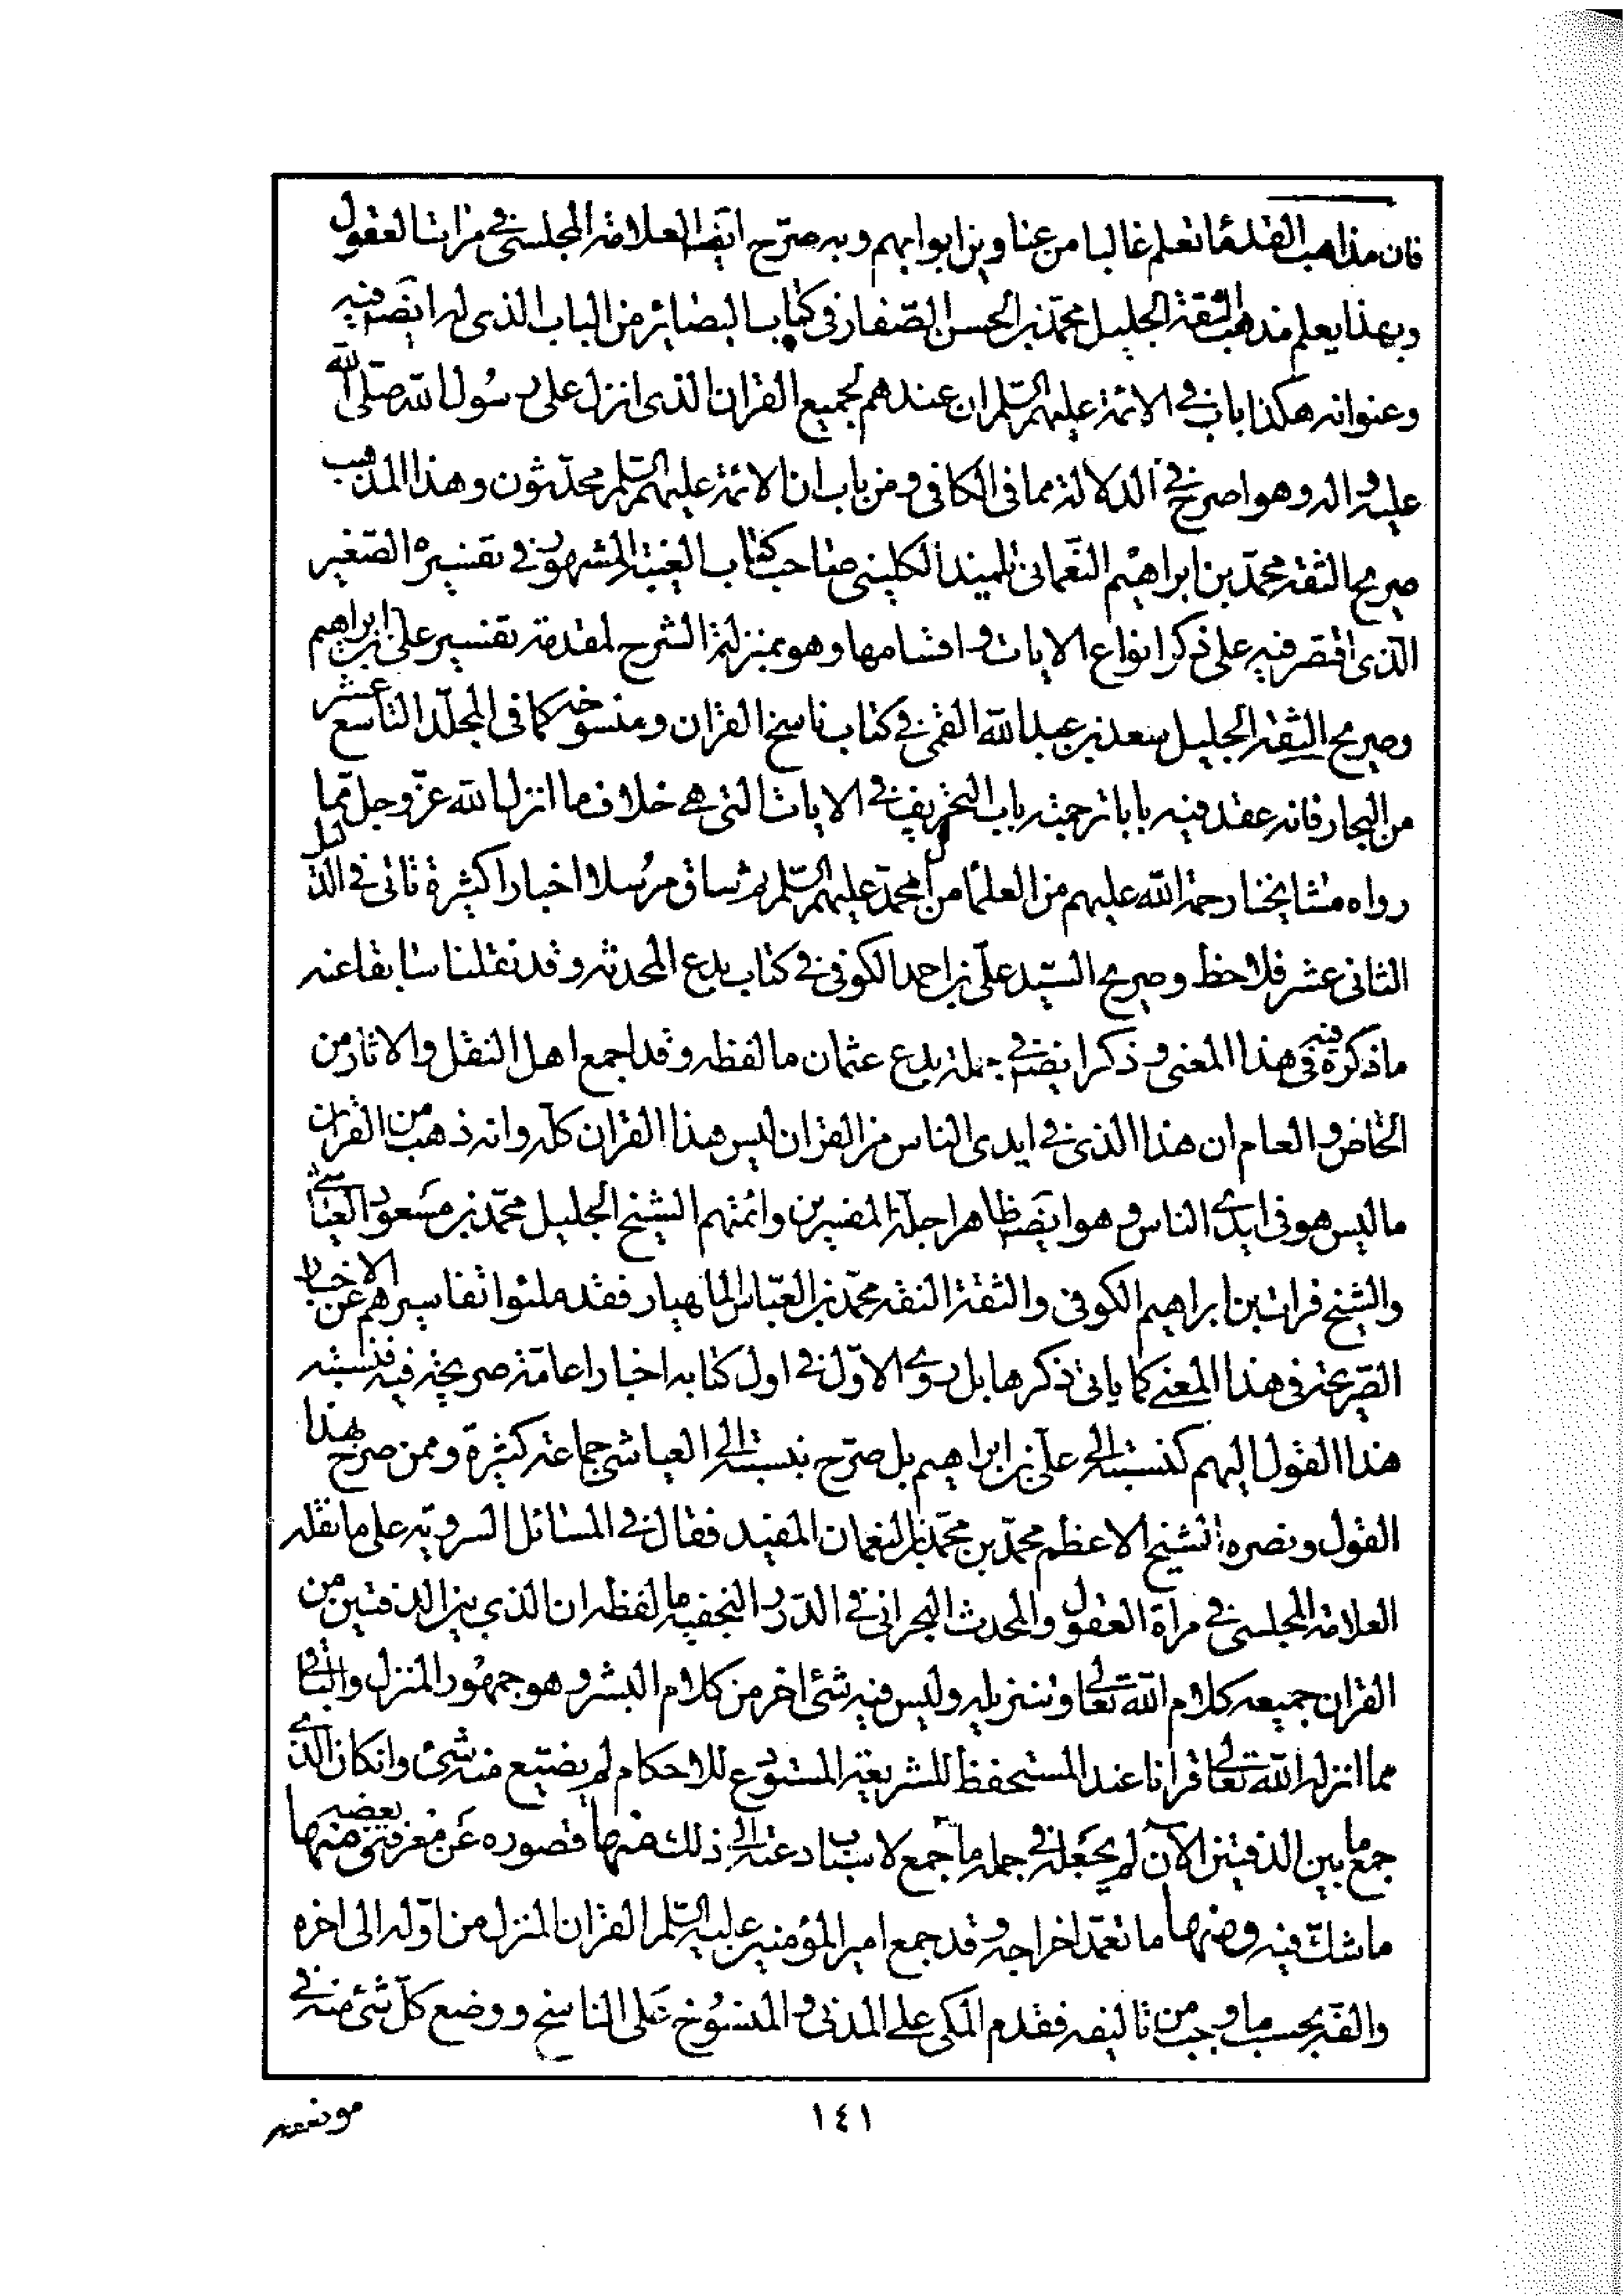 فان مذاهب القدماء تعلم غالبا من عناوين ابوابهم وبه صرّح ايضا العلامة المجلسي في مرات العقول
وبهذا يعلم مذهب الثقة الجليل محمّد بن الحسن الصّفار في كتاب البصائر من الباب الذى له ايضا فيه
وعنوانه هكذا باب في الائمة عليهم السّلم ان عندهم لجميع القران الذى انزل على رسول الله صلّى الله
عليه واله وهو اصرح في الدلالة مما في الكافى ومن باب ان الائمة عليهم السّلم محدّثون وهذا المذهب
صريح الثقه محمّد بن ابراهيم النّعمانى تلميذ الكلينى صاحب كتاب الغيبة المشهور في تفسيره الصّغير
الّذى اقتصر فيه على ذكر انواع الايات واقسامها وهو بمنزلة الشرح لمقدمة تفسير على بن ابراهيم
وصريح الثقة الجليل سعد بن عبد الله القمى في كتاب ناسخ القران ومنسوخه كما فى المجلّد التاسع عشر
من البحار فانه عقد فيه بابا ترجمته باب التحريف في الايات التى هي خلاف ما انزل الله عزّ وجلّ ممّا
رواه مشايخنا رحمة الله عليهم من العلماء من آل محمّد عليهم السّلم ثم ساق مرسلا اخبارا كثيرة تاتى في الدّليل
الثانى عشر فلاحظ وصريح السّيد علّى بن احمد الكوفى في كتاب بدع المحدثة وقد نقلنا سابقا عنه
ما ذكره فيه فى هذا المعنى وذكر ايضا في جملة بدع عثمان ما لفظه وقد اجمع اهل النقل والاثار من
الخاص والعام ان هذا الذى في ايدى الناس من القران ليس هذا القران كلّه وانه ذهب من القران
ما ليس هو فى ايدي الناس وهو ايضا ظاهر اجلّة المفسرين وائمتهم الشيخ الجليل محمّد بن مسعود العياشي
والشيخ فرات بن ابراهيم الكوفى والثقة النقه محمّد بن العبّاس الماهيار فقد ملئوا تفاسيرهم عن الاخبار
الصّريحة فى هذا المعنى كما ياتى ذكرها بل روى الاوّل في اول كتابه اخبارا عامّة صريحة فيه فنسبة
هذا القول اليهم كنسبته الى علّى بن ابراهيم بل صرّح بنسبته الى العياشى جماعة كثيرة وممن صرّح بهذا
القول ونصره الشيخ الاعظم محمّد بن محمّد بن النعمان المفيد فقال في المسائل السرويّة على ما نقله
العلامة المجلسى في مرآة العقول والمحدث البحرانى في الدّرر النجفيه ما لفظه ان الذي بين الدفتين من
القران جميعه كلام الله تعالى وتنزيله وليس فيه شئ اخر من كلام البشر وهو جمهور المنزل والباقى
مما انزله الله تعالى قرانا عند المستحفظ للشريعة المستودع للاحكام لم يضيّع منه شئ وانكان الذي
جمع ما بين الدفتين الآن لم يجعله في جملة ما جمع لاسباب دعته الى ذلك منها قصوره عن معرفة بعضه ومنها
ما شكّ فيه ومنها ما تعمّد اخراجه وقد جمع امير المؤمنين عليه السّلم القران المنزل من اوّله الى اخره
والّفه بحسب ما وجب من تاليفه فقدم المكى على المدنى والمنسوخ على الناسخ ووضع كلّ شئ منه في
١٤١
موضعه